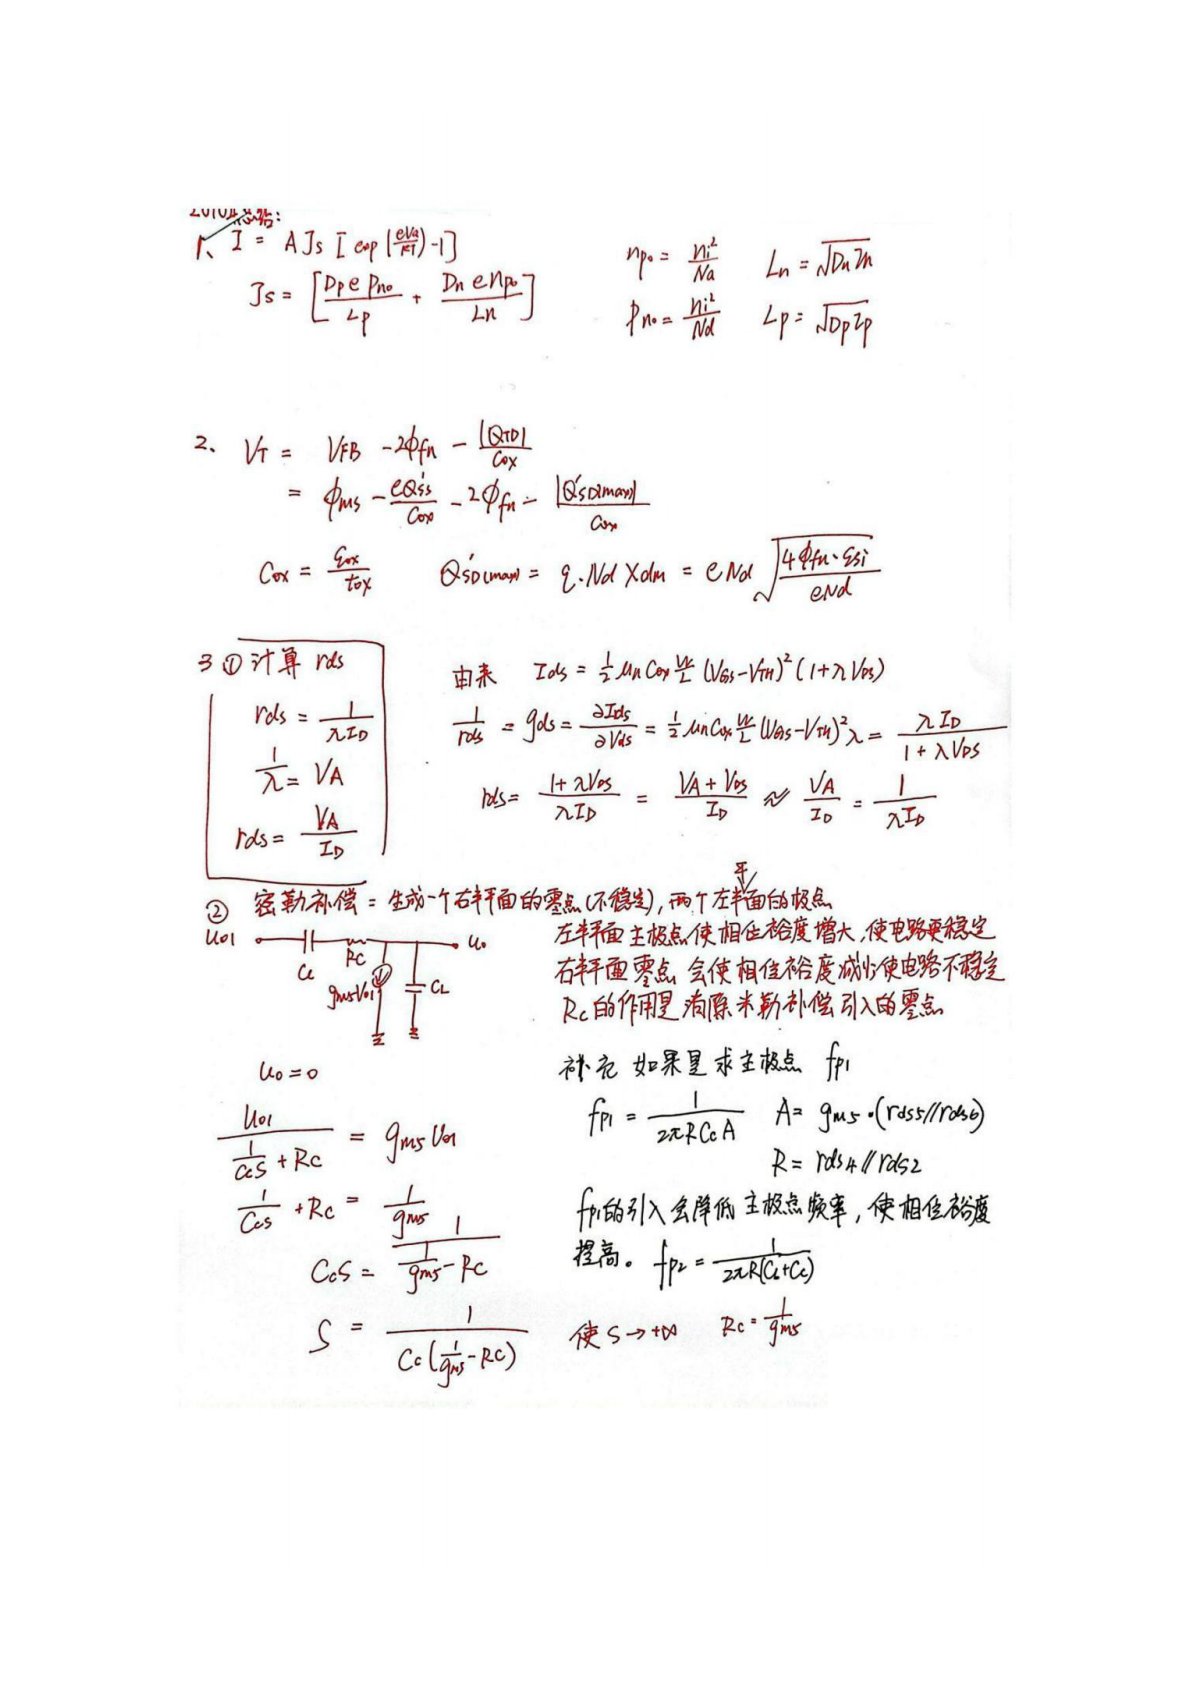 2010年总结:
1、 I = A Js [exp(eVa/kT)-1]
npo = ni²/Na Ln = √(Dn τn)
Js = [Dp e pno/Lp + Dn e npo/Ln]
pno = ni²/Nd Lp = √(Dp τp)
2、 VT = VFB - 2φfn - |QTD|/Cox
= φms - eQ'ss/Cox - 2φfn - |Q'SD(max)|/Cox
Cox = εox/tox Q'SD(max) = q·Nd Xdm = eNd √(4φfn·εsi/eNd)
3 ① 计算 rds
rds = 1/(λID)
1/λ = VA
rds = VA/ID
由来 Ids = ½ μn Cox W/L (VGS-VTH)² (1+λVDS)
1/rds = gds = ∂Ids/∂Vds = ½ μn Cox W/L (VGS-VTH)² λ = λID/(1+λVDS)
rds = (1+λVDS)/(λID) = (VA+VDS)/ID ≈ VA/ID = 1/(λID)
② 密勒补偿: 生成一个右半平面的零点(不稳定), 两个左半平面的极点
左半平面主极点使相位裕度增大,使电路更稳定
右半平面零点 会使相位裕度减少使电路不稳定
Rc的作用是消除米勒补偿引入的零点
uo1 Cc Rc gm5Uo1 CL uo
uo=0
Uo1/(1/(CcS)+Rc) = gm5 Uo1
1/(CcS) + Rc = 1/gm5
CcS = 1/(1/gm5 - Rc)
S = 1/(Cc(1/gm5 - Rc)) 使 S→+∞ Rc = 1/gm5
补充 如果是求主极点 fp1
fp1 = 1/(2πRCcA) A = gm5·(rds5//rds6)
R = rds4//rds2
fp1的引入会降低主极点频率, 使相位裕度
提高。 fp2 = 1/(2πR(CL+Cc))